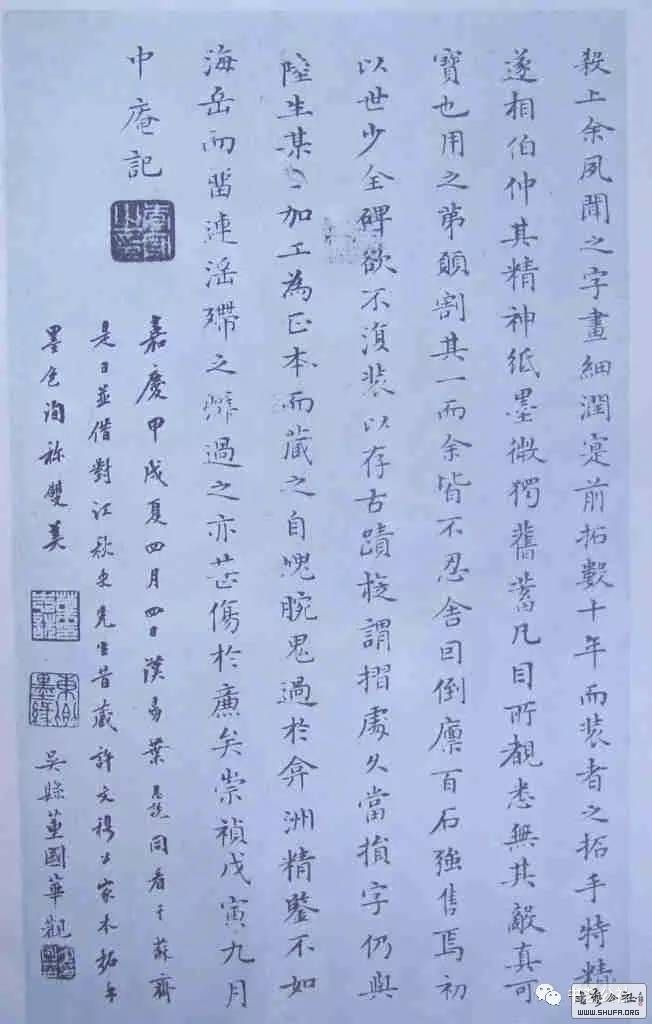 殺上余夙聞之字畫細潤寔前拓數十年而裝者之拓手特精
遂相伯仲其精神紙墨微獨舊蓄凡目所覩悉無其敵真可
寶也用之第願割其一而余皆不忍舍因倒廪百石強售焉初
以世少全碑欲不復裝以存古蹟筱謂摺處久當損字仍與
陸生某〻加工為正本而藏之自愧腕鬼過於弇洲精鑒不如
海岳而留連滛殢之癖過之亦甚傷於廉矣崇禎戊寅九月
中庵記
嘉慶甲戌夏四月四日漢昜葉志詵同看于蘇齋
是日並借對江秋史先生昔藏許文穆公家本拓手
墨色洵称雙美
吳縣董國華觀
書藝公社
WWW.SHUFA.ORG